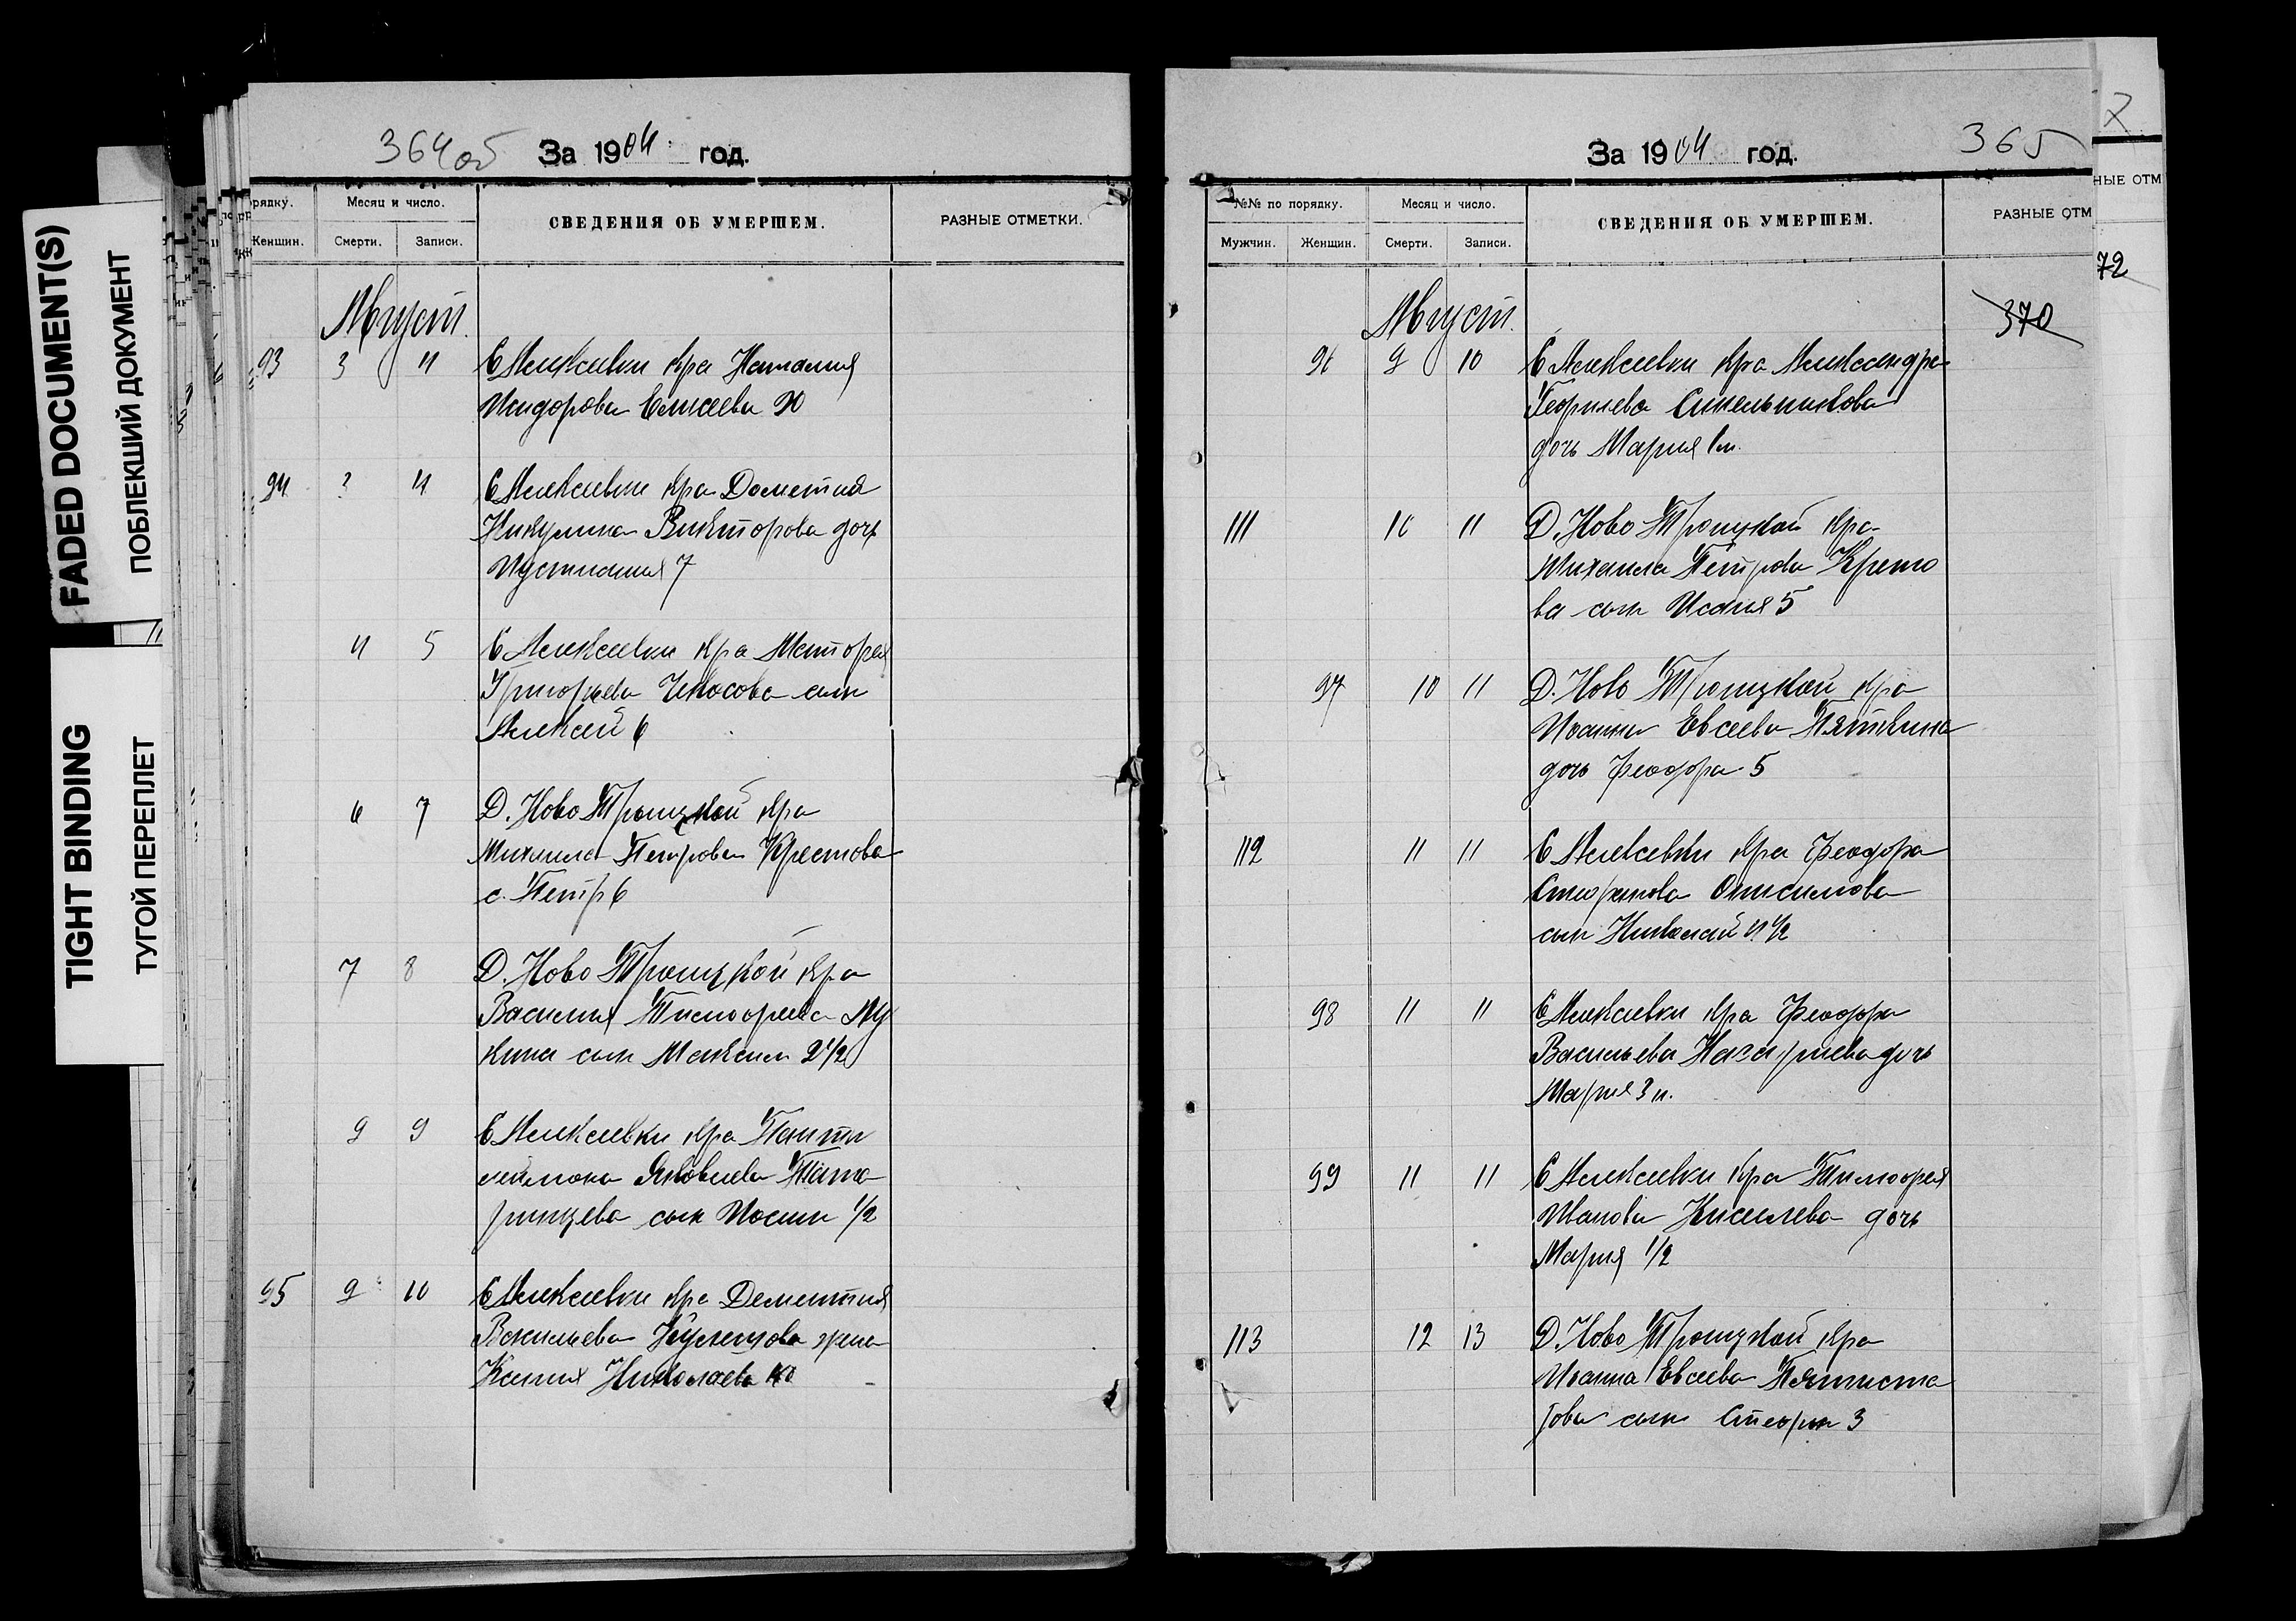 FADED DOCUMENT(S)
ПОБЛЕКШИЙ ДОКУМЕНТ
TIGHT BINDING
ТУГОЙ ПЕРЕПЛЕТ
364об За 1904 год.
рядку. Месяц и число. СВЕДЕНИЯ ОБ УМЕРШЕМ. РАЗНЫЕ ОТМЕТКИ.
Женщин. Смерти. Записи.
Август.
93 3 4 С Алексеевки кр-а Наталия
Исидорова Елисеева 90
94 3 4 С Алексеевки кр-а Дометия
Никулина Викторова дочь
7
4 5 С Алексеевки кр-а
Григорьева сын
Алексей 6
6 7 Д. Ново Троицкой кр-а
Михаила Петрова Крестова
с. Петр 6
7 8 Д. Ново Троицкой кр-а
Василия Тимофеева Му
кина сын Максим 2 1/2
9 9 С Алексеевки кр-а Панте
леимона Яковлева Тата
ринцева сын Иосиф 1/2
95 9 10 С Алексеевки кр-а Дементия
Васильева жена
Ксения Николаева 40
За 1904 год. 365
№№ по порядку. Месяц и число. СВЕДЕНИЯ ОБ УМЕРШЕМ. РАЗНЫЕ ОТМ
Мужчин. Женщин. Смерти. Записи.
НЫЕ ОТМ
72
370
Август.
96 9 10 С Алексеевки кр-а Александра
Георгиева Синельникова
дочь Мария 1 м.
111 10 11 Д. Ново Троицкой кр-а
Михаила Петрова Кресто
ва сын Исаия 5
97 10 11 Д. Ново Троицкой кр-а
Иоанна Евсеева Пяткина
дочь Феодора 5
112 11 11 С Алексеевки кр-а Феодора
Стефанова Онисимова
сын Николай 4 1/2
98 11 11 С Алексеевки кр-а Феодора
Васильева Назариева дочь
Мария 3 н.
99 11 11 С Алексеевки кр-а Тимофея
Иванова Киселева дочь
Мария 1/2
113 12 13 Д. Ново Троицкой кр-а
Иоанна Евсеева
сын Стефан 3